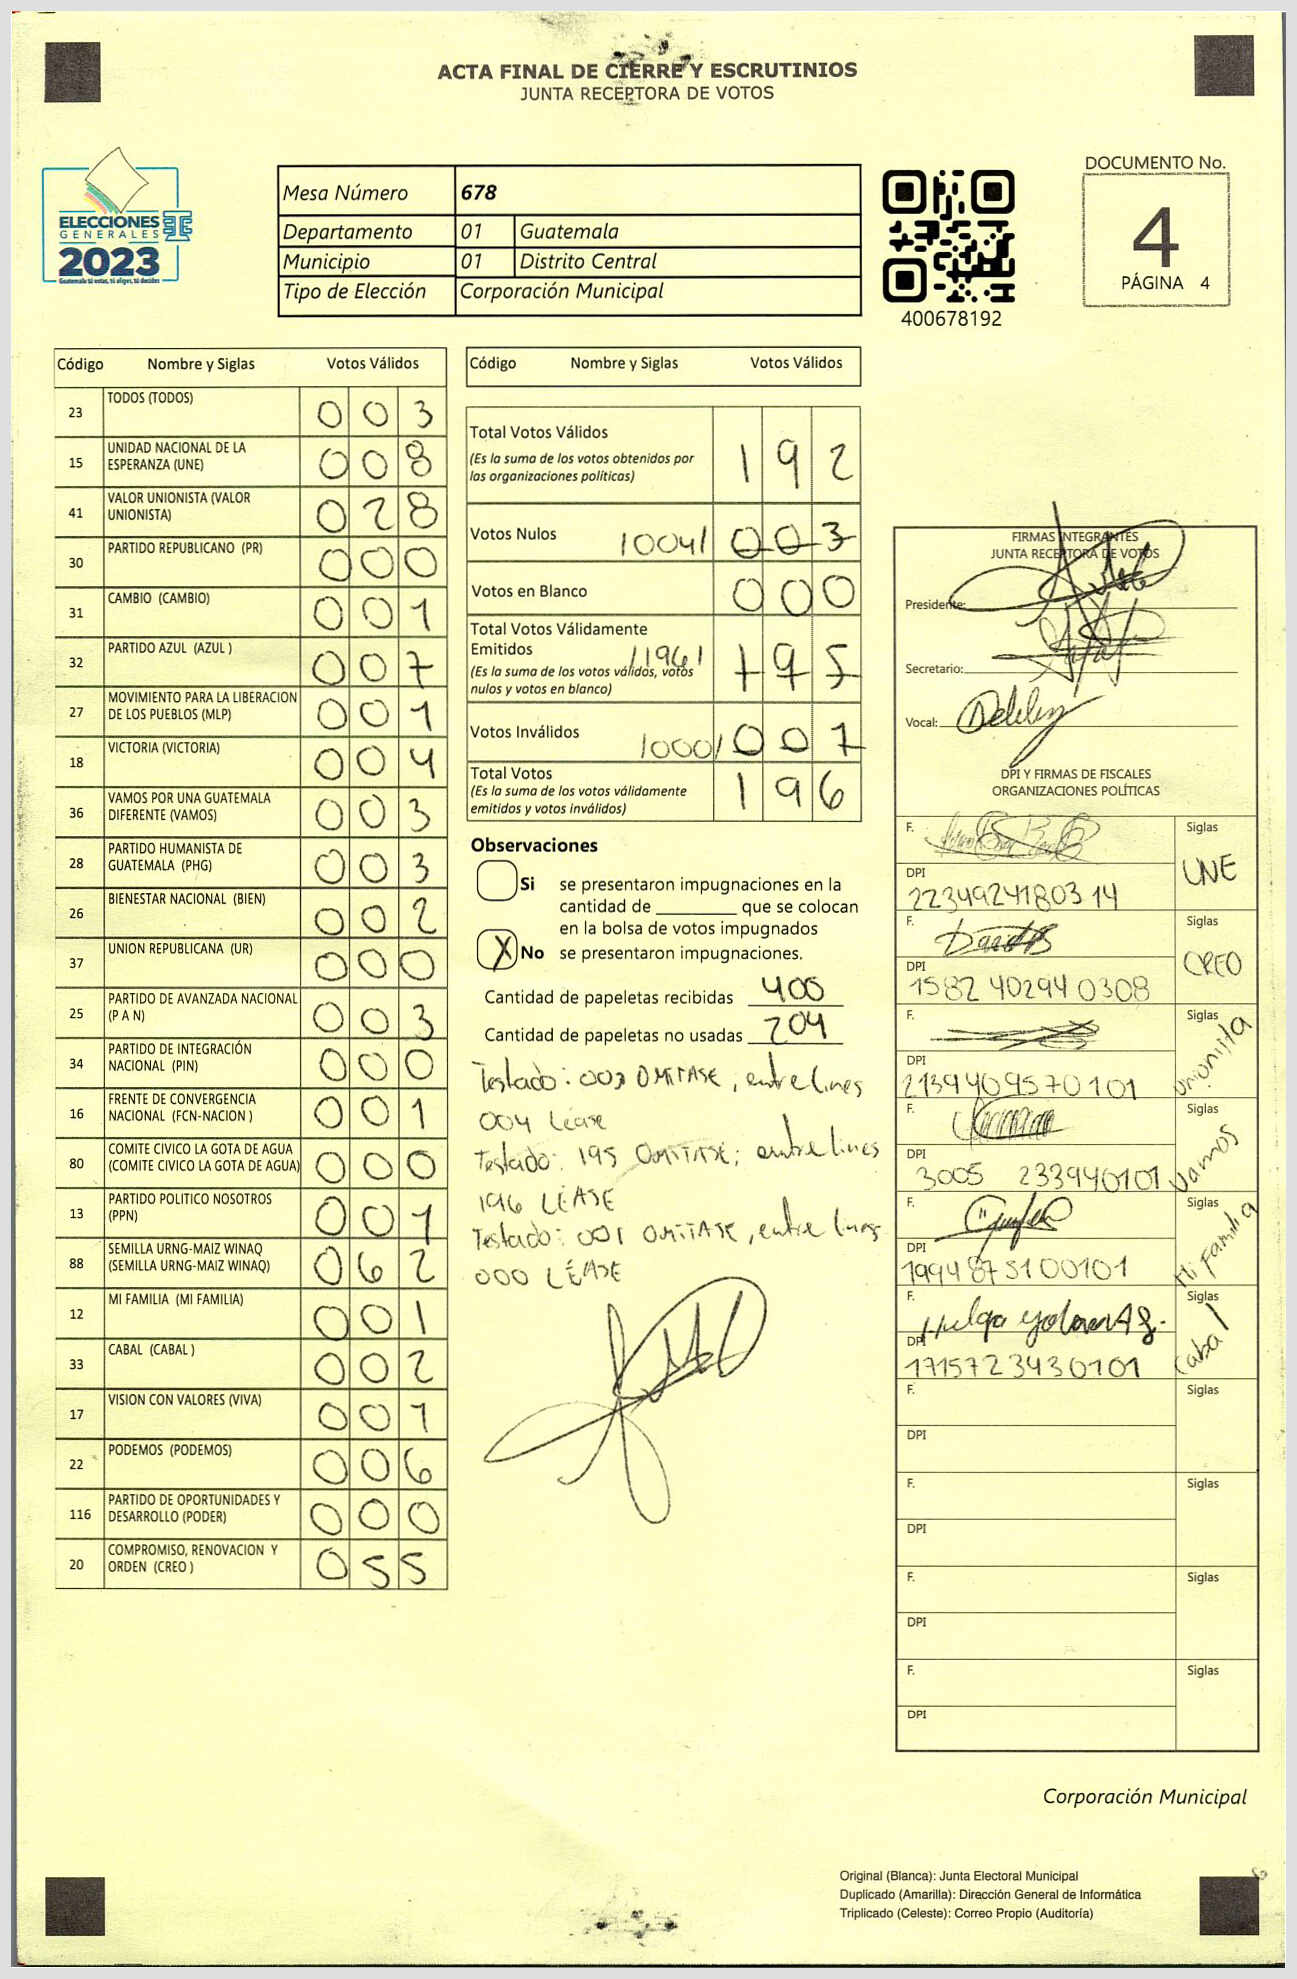 ACTA FINAL DE CIERRE Y ESCRUTINIOS
JUNTA RECEPTORA DE VOTOS
ELECCIONES
GENERALES
2023
Guatemala tú votas, tú eliges, tú decides
Mesa Número 678
Departamento 01 Guatemala
Municipio 01 Distrito Central
Tipo de Elección Corporación Municipal
400678192
DOCUMENTO No.
4
PÁGINA 4
Código Nombre y Siglas Votos Válidos
23 TODOS (TODOS) 0 0 3
15 UNIDAD NACIONAL DE LA ESPERANZA (UNE) 0 0 8
41 VALOR UNIONISTA (VALOR UNIONISTA) 0 2 8
30 PARTIDO REPUBLICANO (PR) 0 0 0
31 CAMBIO (CAMBIO) 0 0 1
32 PARTIDO AZUL (AZUL ) 0 0 7
27 MOVIMIENTO PARA LA LIBERACION DE LOS PUEBLOS (MLP) 0 0 1
18 VICTORIA (VICTORIA) 0 0 4
36 VAMOS POR UNA GUATEMALA DIFERENTE (VAMOS) 0 0 3
28 PARTIDO HUMANISTA DE GUATEMALA (PHG) 0 0 3
26 BIENESTAR NACIONAL (BIEN) 0 0 2
37 UNION REPUBLICANA (UR) 0 0 0
25 PARTIDO DE AVANZADA NACIONAL (P A N) 0 0 3
34 PARTIDO DE INTEGRACIÓN NACIONAL (PIN) 0 0 0
16 FRENTE DE CONVERGENCIA NACIONAL (FCN-NACION ) 0 0 1
80 COMITE CIVICO LA GOTA DE AGUA (COMITE CIVICO LA GOTA DE AGUA) 0 0 0
13 PARTIDO POLITICO NOSOTROS (PPN) 0 0 1
88 SEMILLA URNG-MAIZ WINAQ (SEMILLA URNG-MAIZ WINAQ) 0 6 2
12 MI FAMILIA (MI FAMILIA) 0 0 1
33 CABAL (CABAL ) 0 0 2
17 VISION CON VALORES (VIVA) 0 0 1
22 PODEMOS (PODEMOS) 0 0 6
116 PARTIDO DE OPORTUNIDADES Y DESARROLLO (PODER) 0 0 0
20 COMPROMISO, RENOVACION Y ORDEN (CREO ) 0 5 5
Código Nombre y Siglas Votos Válidos
Total Votos Válidos 1 9 2
(Es la suma de los votos obtenidos por
las organizaciones políticas)
Votos Nulos /004/ 0 0 3
Votos en Blanco 0 0 0
Total Votos Válidamente
Emitidos /196/ 1 9 5
(Es la suma de los votos válidos, votos
nulos y votos en blanco)
Votos Inválidos /000/ 0 0 1
Total Votos 1 9 6
(Es la suma de los votos válidamente
emitidos y votos inválidos)
Observaciones
Si se presentaron impugnaciones en la
cantidad de ________ que se colocan
en la bolsa de votos impugnados
X No se presentaron impugnaciones.
Cantidad de papeletas recibidas 400
Cantidad de papeletas no usadas 204
Testado: 003 OMITASE, entre lines
004 Léase
Testado: 195 OMITASE; entre lines
196 LÉASE
Testado: 001 OMITASE, entre lines
000 LÉASE
FIRMAS INTEGRANTES
JUNTA RECEPTORA DE VOTOS
Presidente:
Secretario:
Vocal:
DPI Y FIRMAS DE FISCALES
ORGANIZACIONES POLÍTICAS
F. Siglas
DPI UNE
2234924180314
F. Siglas
DPI CREO
1582 40294 0308
F. Siglas
DPI Unionista
2139409570101
F. Siglas
DPI Vamos
3005 233940101
F. Siglas
DPI Mi Familia
1994875100101
F. Siglas
DPI Cabal
1715723430101
F. Siglas
DPI
F. Siglas
DPI
F. Siglas
DPI
F. Siglas
DPI
Corporación Municipal
Original (Blanca): Junta Electoral Municipal
Duplicado (Amarilla): Dirección General de Informática
Triplicado (Celeste): Correo Propio (Auditoría)